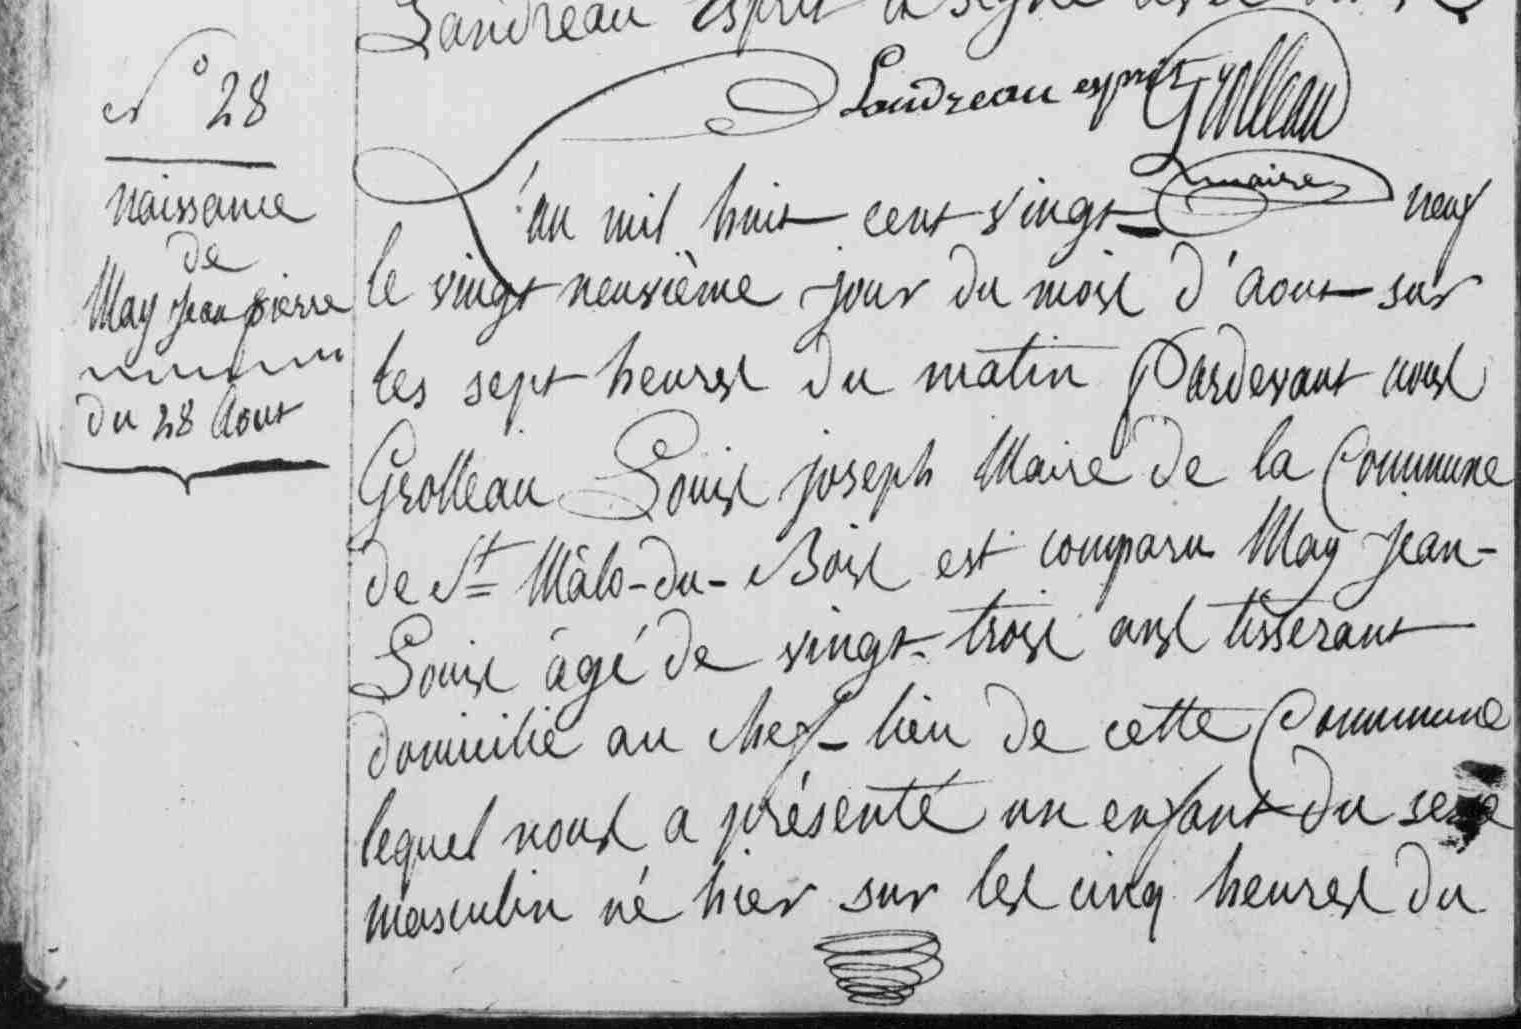 Landreau Esprit a signé avec
Landreau esprit Grolleau
maire
N° 28
naissance
de
May Jean pierre
du 28 Aout
L'an mil huit cent vingt- neuf
le vingt neuvième jour du mois d'aout sur
les sept heures du matin Pardevant nous
Grolleau Louis joseph Maire de la Commune
de St Mâlo-du-Bois est comparu May Jean-
Louis âgé de vingt-trois ans tisserant
domicilié au chef-lieu de cette Commune
lequel nous a présenté un enfant du sexe
masculin né hier sur les cinq heures du